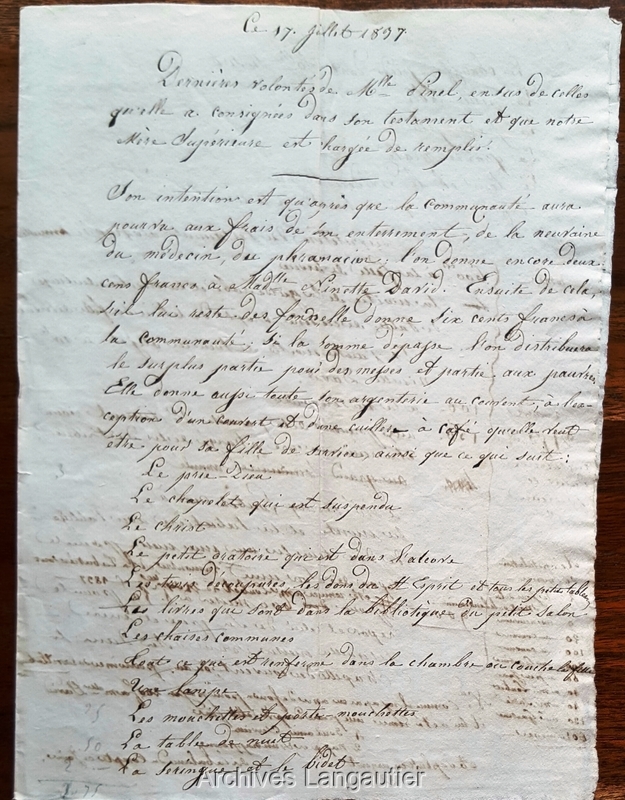 Ce 17. Jillet 1837
Dernières volontés de Mlle Pinel, en sus de celles
qu'elle a consignées dans son testament et que notre
Mère Supérieure est chargée de remplir.
Son intention est qu'après que la communauté aura
pourvu aux frais de son enterrement, de la neuvaine
du médecin, du phramacien; l'on donne encore deux
cens francs a Madlle Ninette David. Ensuite de cela,
s'il lui reste des fonds elle donne six cents francs a
la communauté: si la somme dépasse l'on distribuera
le surplus partie pour des messes et partie aux pauvres
Elle donne aussi toute son argenterie au couvent, à l'ex-
ception d'un couvert et d'une cuillere à café qu'elle veut
être pour sa fille de service ainsi que ce que suit:
Le prie-Dieu
Le chapelet qui est suspendu
Le christ
Le petit oratoire que est dans l'alcove
Les dons du St Esprit et tous les petits tableaux
Les livres que sont dans la bibliotique du petit salon
Les chaises communes
Tout ce que est renfermé dans la chambre ou couche la fille
Une lampe
Les mouchettes et porte mouchettes
La table de nuit
La seringue et le bidet
Archives Langautier